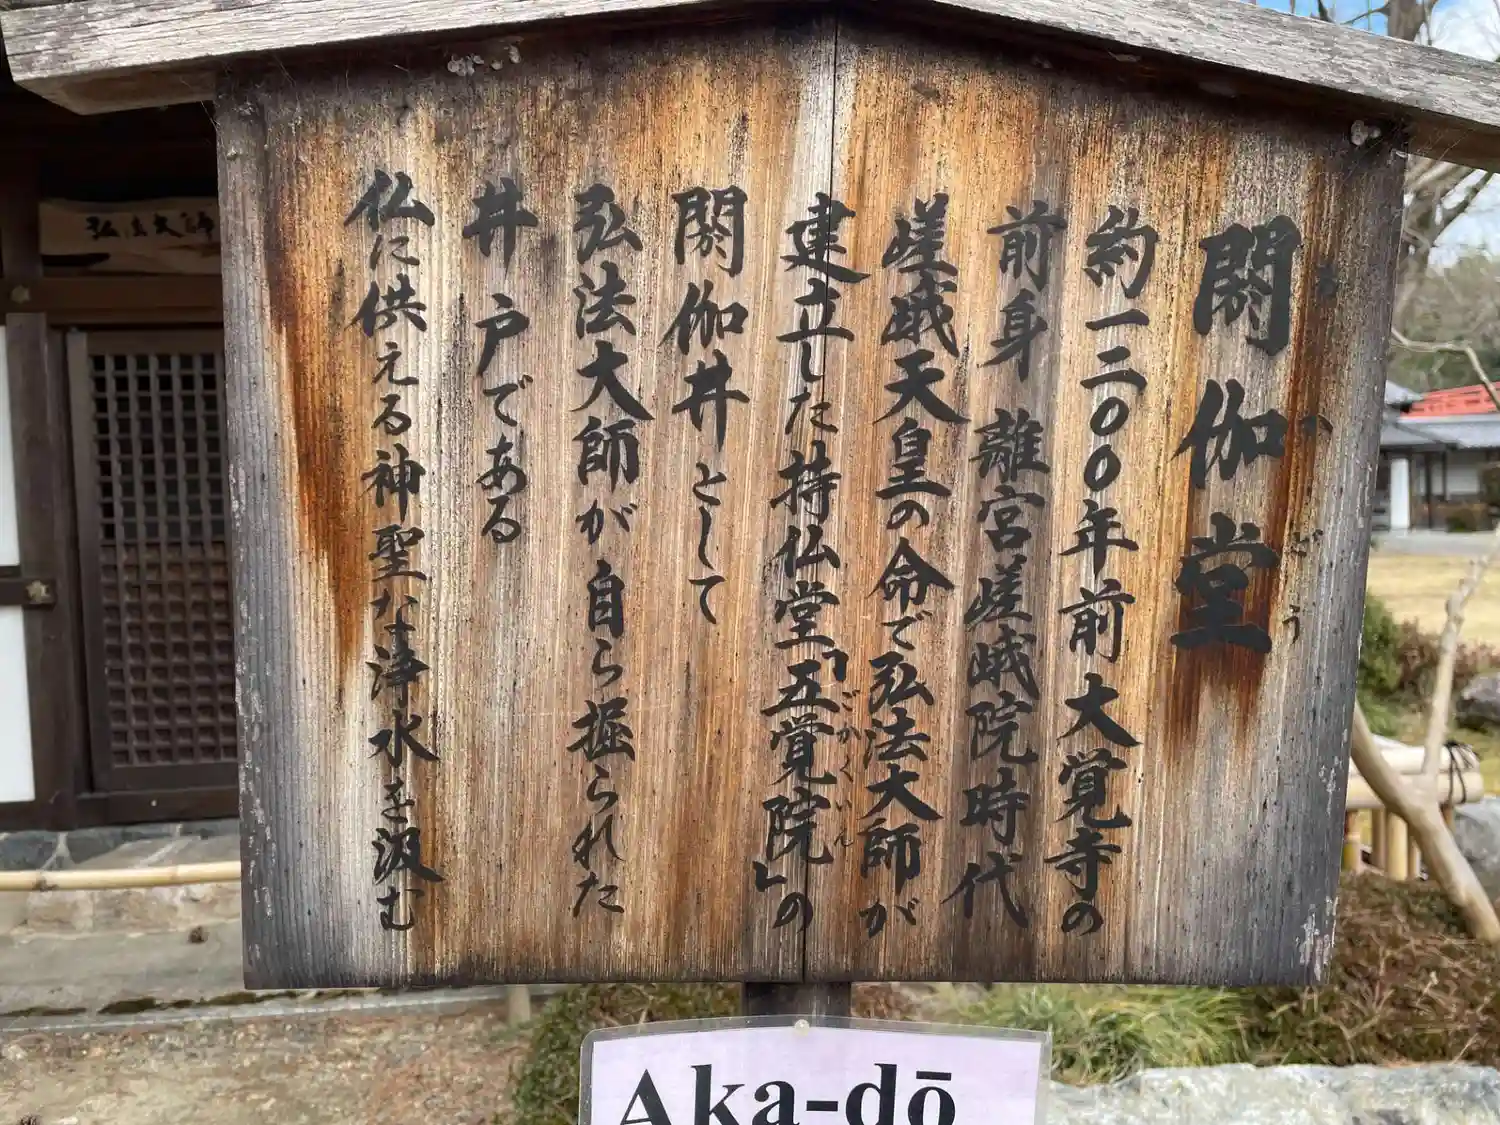 閼伽堂
あかどう
約一二〇〇年前大覚寺の
前身 離宮嵯峨院時代
嵯峨天皇の命で弘法大師が
建立した持仏堂「五覚院」の
ごかくいん
閼伽井として
弘法大師が自ら掘られた
井戸である
仏に供える神聖な浄水を汲む
弘法大師
Aka-dō